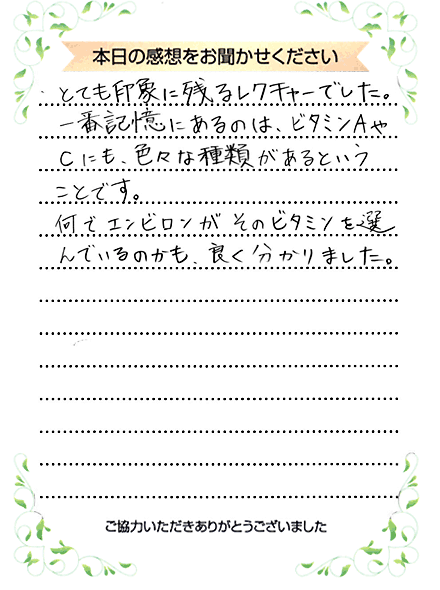 本日の感想をお聞かせください
とても印象に残るレクチャーでした。
一番記憶にあるのは、ビタミンAや
Cにも、色々な種類があるという
ことです。
何でエンビロンがそのビタミンを選
んでいるのかも、良く分かりました。
ご協力いただきありがとうございました